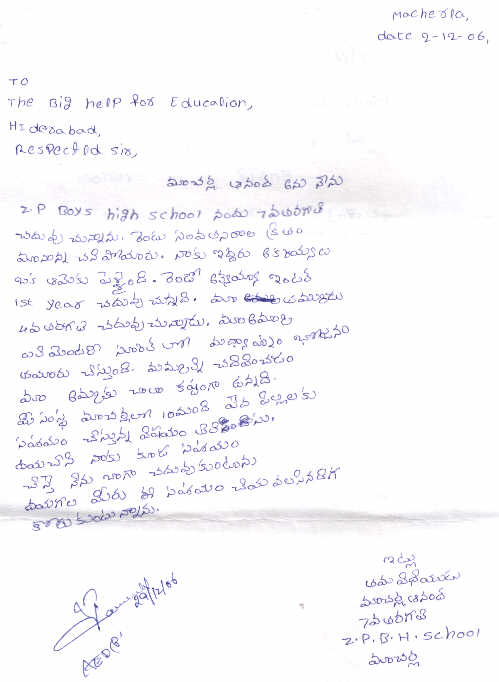 Macherla,
date 2-12-06,
TO
The Big help for Education,
Hiderabad,
Respected sir,
మాచర్ల ఆనంద్ అను నేను
Z P Boys high school నందు 7వ తరగతి
చదువు చున్నాను. రెండు సంవత్సరాల క్రితం
మా నాన్న చనిపోయారు. నాకు ఇద్దరు అక్కయ్యలు
ఒక ఆమెకు పెళ్ళైంది. రెండో అక్కయ్య ఇంటర్
1st year చదువు చున్నది. మా తమ్ముడు
4వ తరగతి చదువు చున్నాడు. మా అమ్మ
ఎలిమెంటరీ స్కూల్ లో మధ్యాహ్నం భోజనం
తయారు చేస్తుంది. మమ్మల్ని చదివించడం
మా అమ్మకు చాలా కష్టంగా ఉన్నది.
మీ సంస్థ మాచర్లలో 10మంది పేద పిల్లలకు
సహాయం చేస్తున్న విషయం
దయచేసి నాకు కూడా సహాయం
చేస్తే నేను బాగా చదువుకుంటాను
దయగల మీరు ఈ సహాయం చేయ వలసినదిగా
కోరు కుంటున్నాను.
ఇట్లు
తమ విధేయుడు
మాచర్ల ఆనంద్
7వ తరగతి
Z.P.B.H. School
మాచర్ల
29/12/06